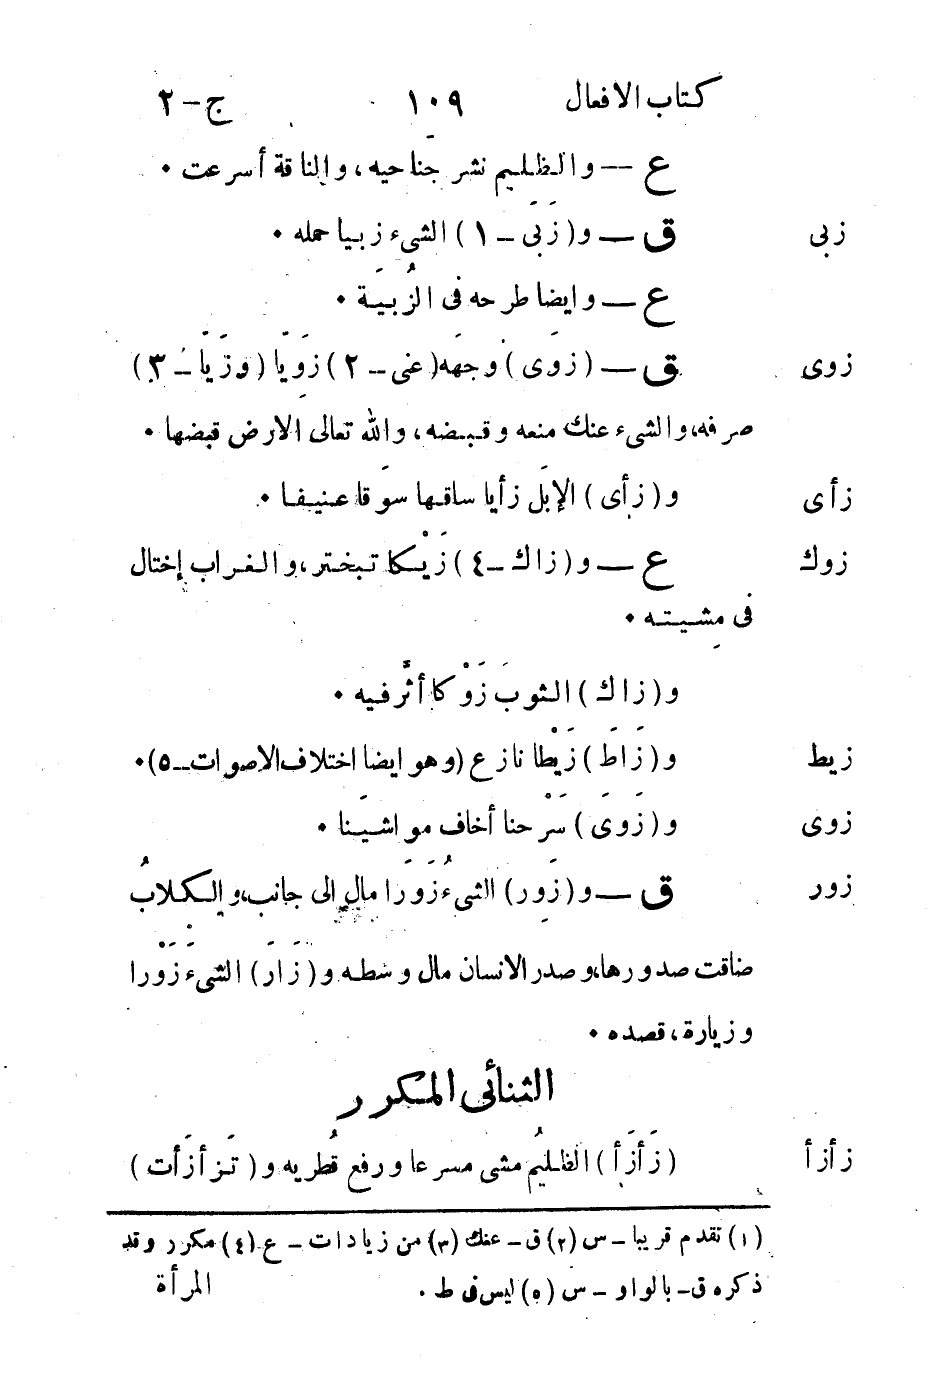 كتاب الافعال ١٠٩ ج - ٢
ع — والظليم نشر جناحيه، والناقة أسرعت ٠
زبى ق — و ( زَبَى - ١ ) الشىء زبيا حمله ٠
ع — وايضا طرحه فى الزُبيَة ٠
زوى ق — ( زوَى ) وجهَه ( عنى - ٢ ) زوَيّا ( وزَيّا - ٣ )
صرفه، والشىء عنك منعه وقبضه، والله تعالى الارض قبضها ٠
زأى و ( زأى ) الإبَل زأيا ساقها سوَقا عنيفا ٠
زوك ع — و ( زاك - ٤ ) زَيْكا تبختر، والغراب إختال
فى مِشيته ٠
و ( زاك ) الثوبَ زَوْكا أثَّر فيه ٠
زيط و ( زَاطَ ) زَيْطا نازع (وهو ايضا اختلاف الاصوات - ٥) ٠
زوى و ( زَوَىَ ) سَرْحنا أخاف مواشيَنا ٠
زور ق — و ( زَوِر ) الشىءُ زَوَرا مال الى جانب، والكلابُ
ضاقت صدورها، وصدر الانسان مال وسَطه و ( زَارَ ) الشىءَ زَوْرا
وزيارة، قصده ٠
الثنائى المكرر
زأزأ ( زَأزَأ ) الظليُم مشى مسرعا ورفع قُطريه و ( تَزأزَأت )
(١) تقدم قريبا - س (٢) ق - عنك (٣) من زيادات - ع (٤) مكرر وقد
ذكره ق - بالواو - س (٥) ليس فى ط ٠ المرأة